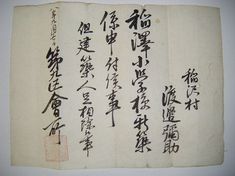 稲沢村
渡邊彌助
稲澤小学校新築
係申付候事
但建築人足相除候事
第九区會所